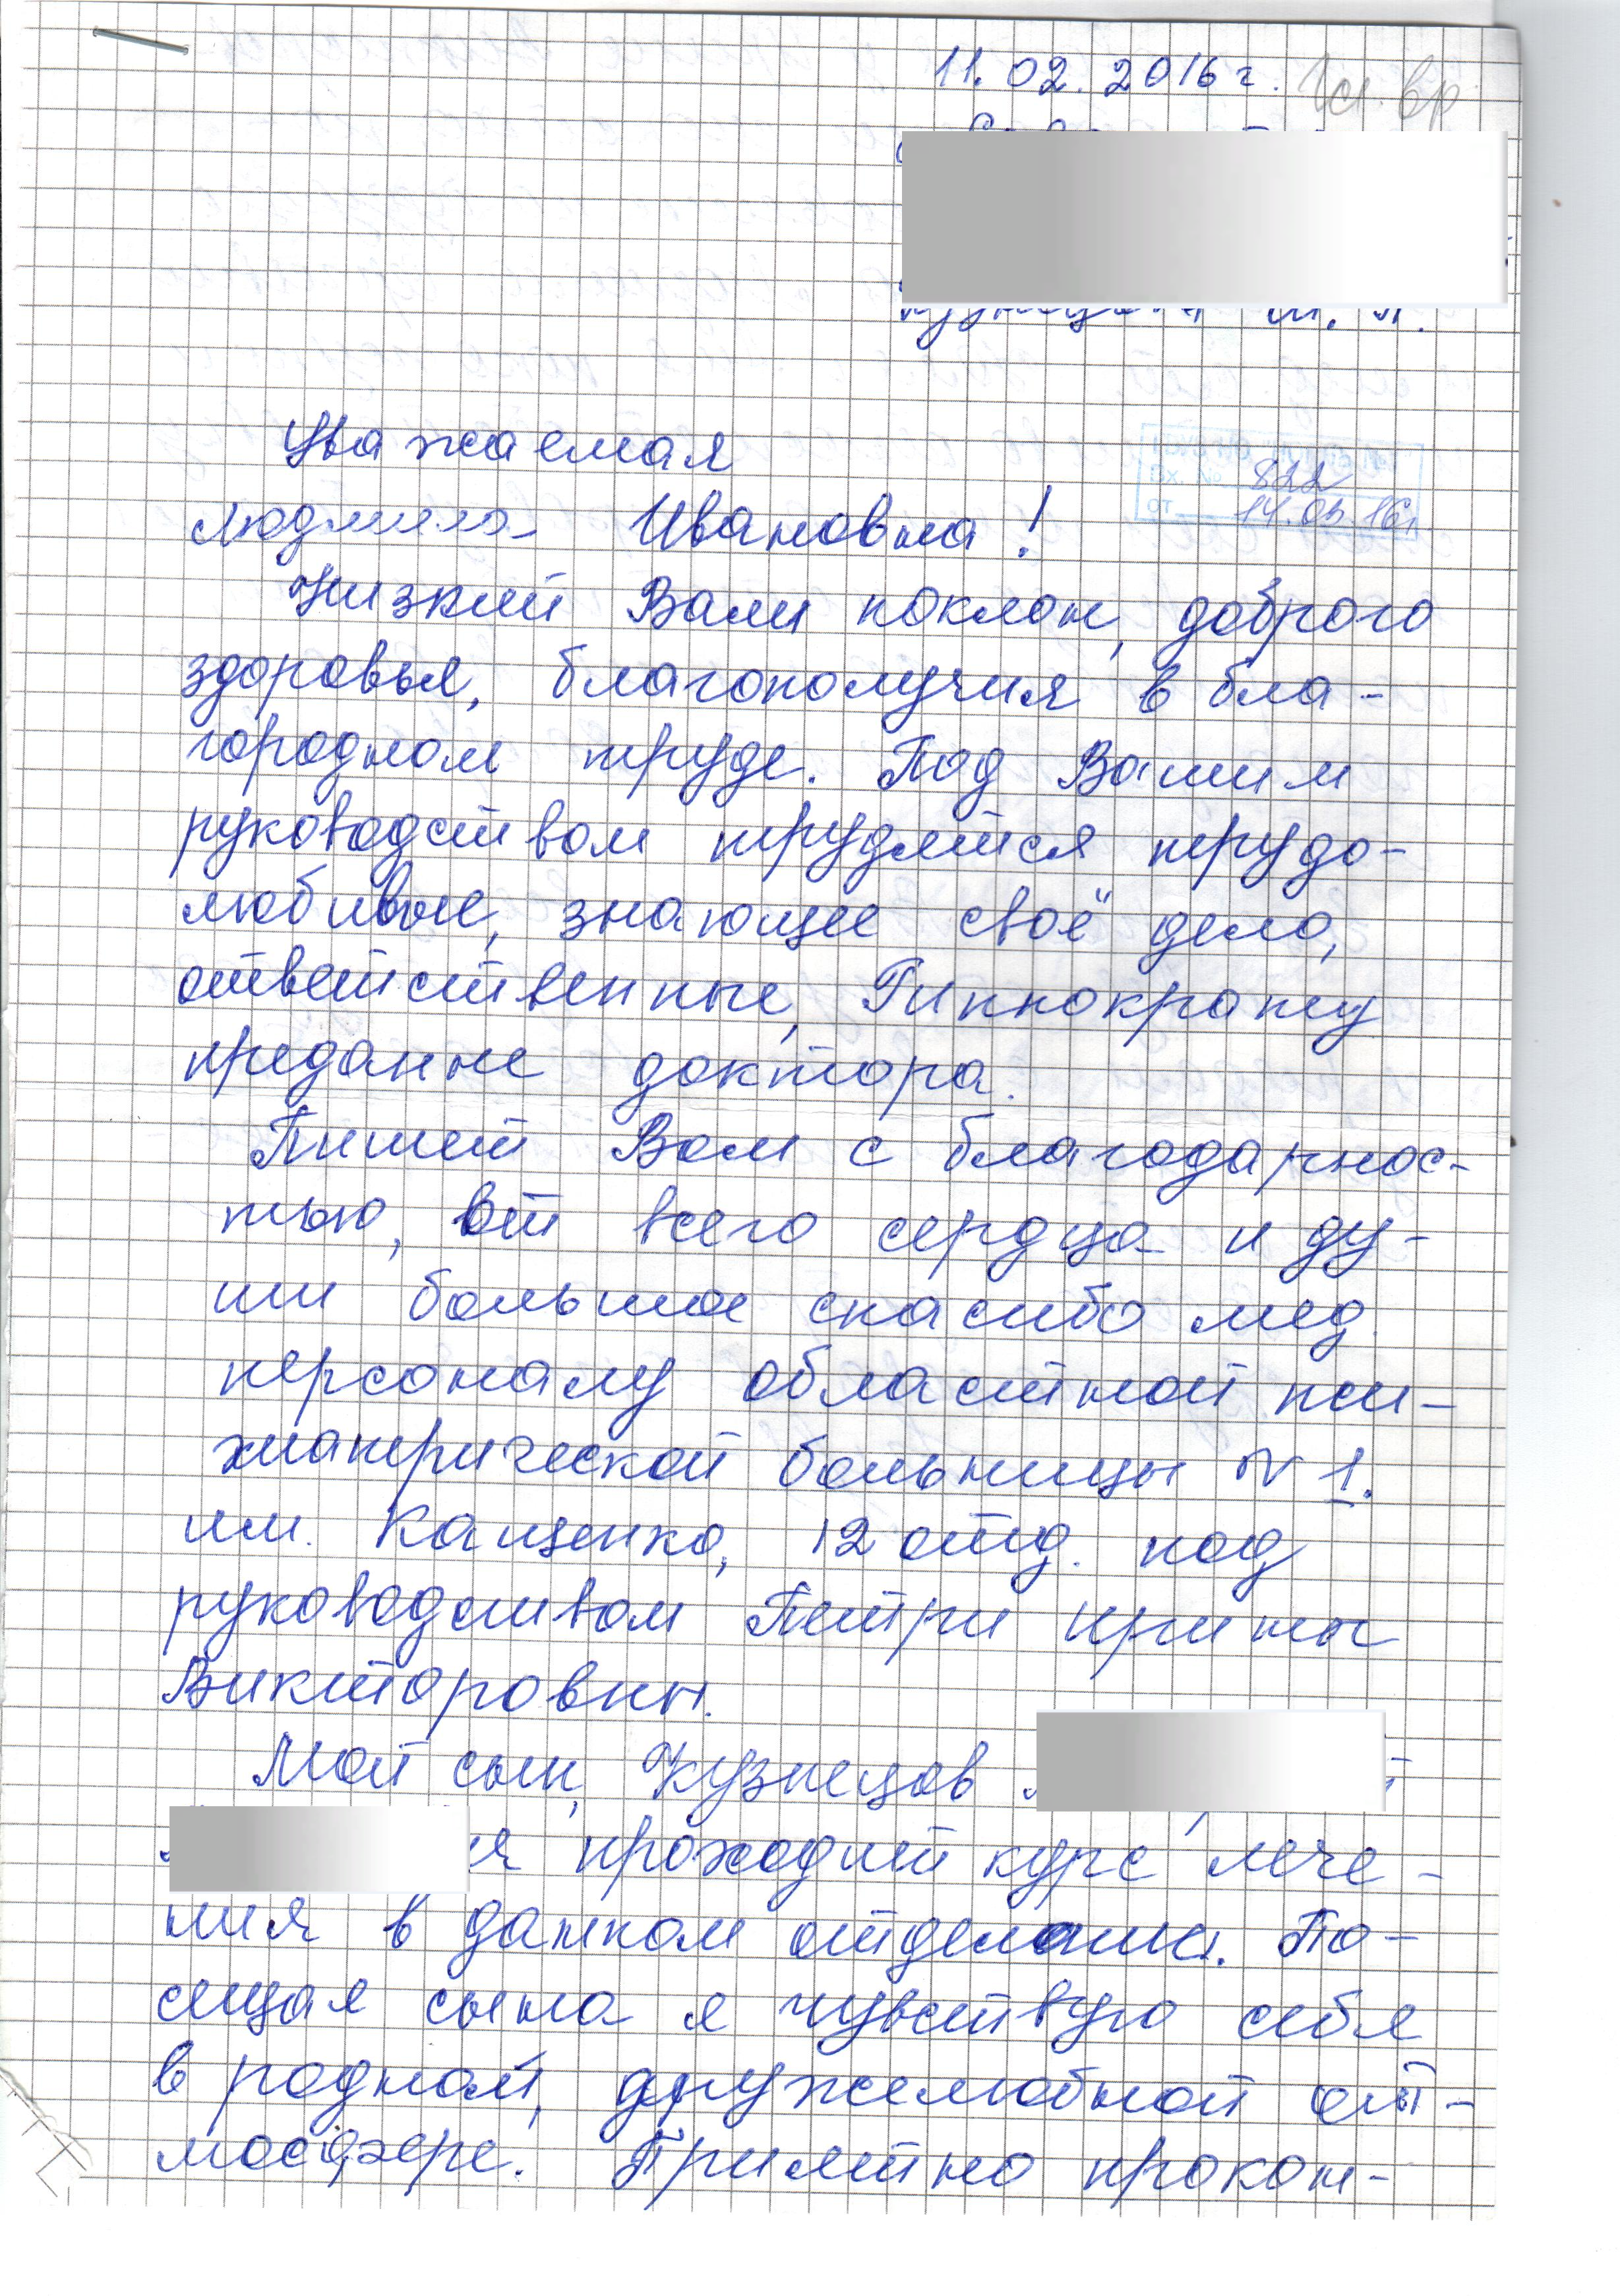 11.02.2016 г. Гл. вр.
Уважаемая
822
Людмила Ивановна!
14.03.16г.
Низкий Вам поклон, доброго
здоровья, благополучия в бла-
городном труде. Под Вашим
руководством трудятся трудо-
любивые, знающее своё дело,
ответственные, Гиппократу
преданне доктора.
Пишет Вам с благодарнос-
тью, от всего сердца и ду-
ши большое спасибо мед.
персоналу областной пси-
хиатрической больницы N 1.
им. Кащенко, 12 отд. под
руководством Петри Ирины
Викторовны.
Мой сын, Кузнецов
проходит курс лече-
ния в данном отделании. По-
сещая сына я чувствую себя
в родной, дружелюбной от-
мосфере. Приятно прокон-